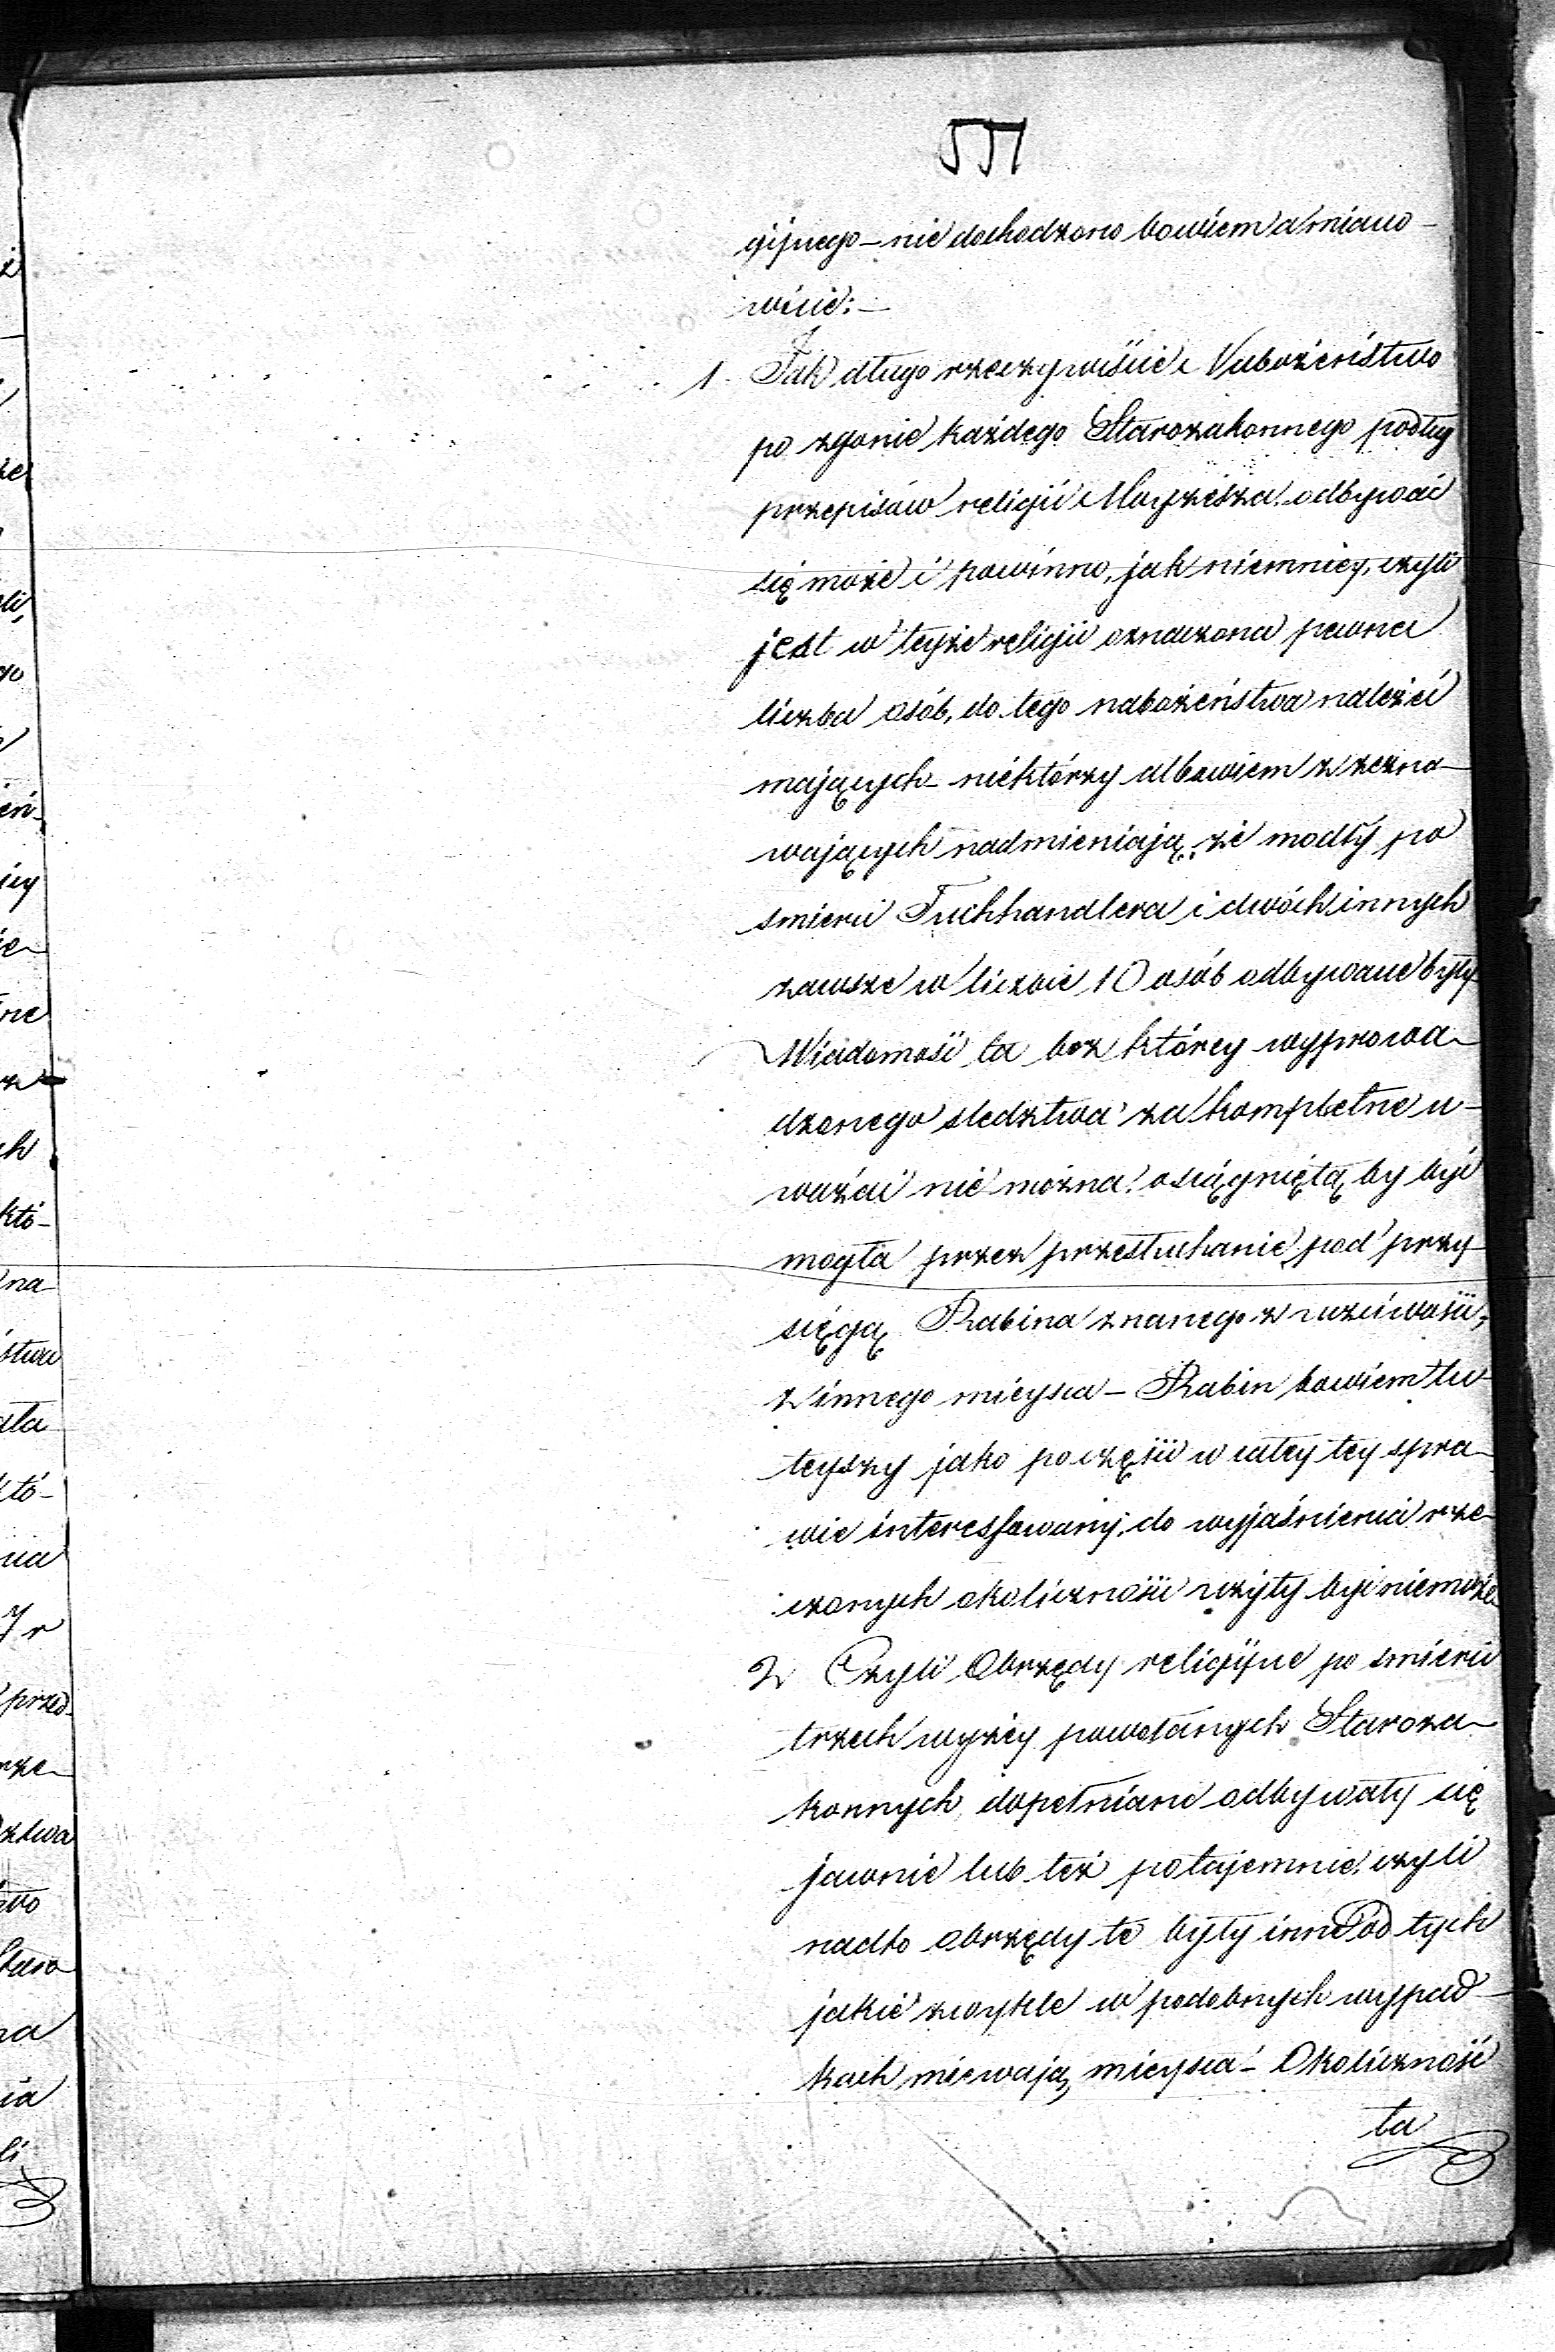 gijnego – nie dochodzono bowiem a miano-
wicie: –
1. Jak długo rzeczywiście Nabożeństwo
po zgonie każdego Starozakonnego podług
przepisów religii Moyżesza odbywać
się może i powinno, jak niemniey, czyli
jest w teyże religii oznaczona pewna
liczba osób, do tego nabożeństwa należeć
mających – niektórzy albowiem z zezna-
wających nadmieniają, że modły po
smierci Tuchhandlera i dwóch innych
zawsze w liczbie 10 osób odbywane były
Wiadomość ta bez którey wyprowa-
dzonego sledztwa za kompletne u-
ważać nie można, osiągniętą by być
mogła przez przesłuchanie pod przy-
sięgą Rabina znanego z uczciwości,
z innego mieysca – Rabin bowiem tu-
teyszy jako po części w całey tey spra-
wie interessowany, do wyjaśnienia rze-
czonych okoliczności użyty być niemoże
2. Czyli Obrzędy religijne po smierci
trzech wyżey powołanych Staroza-
konnych dopełniane odbywały się
jawnie lub też potajemnie, czyli
nadto obrzędy te były inne od tych
jakie zwykle w podobnych wypad-
kach miewają mieysca – Okoliczność
ta